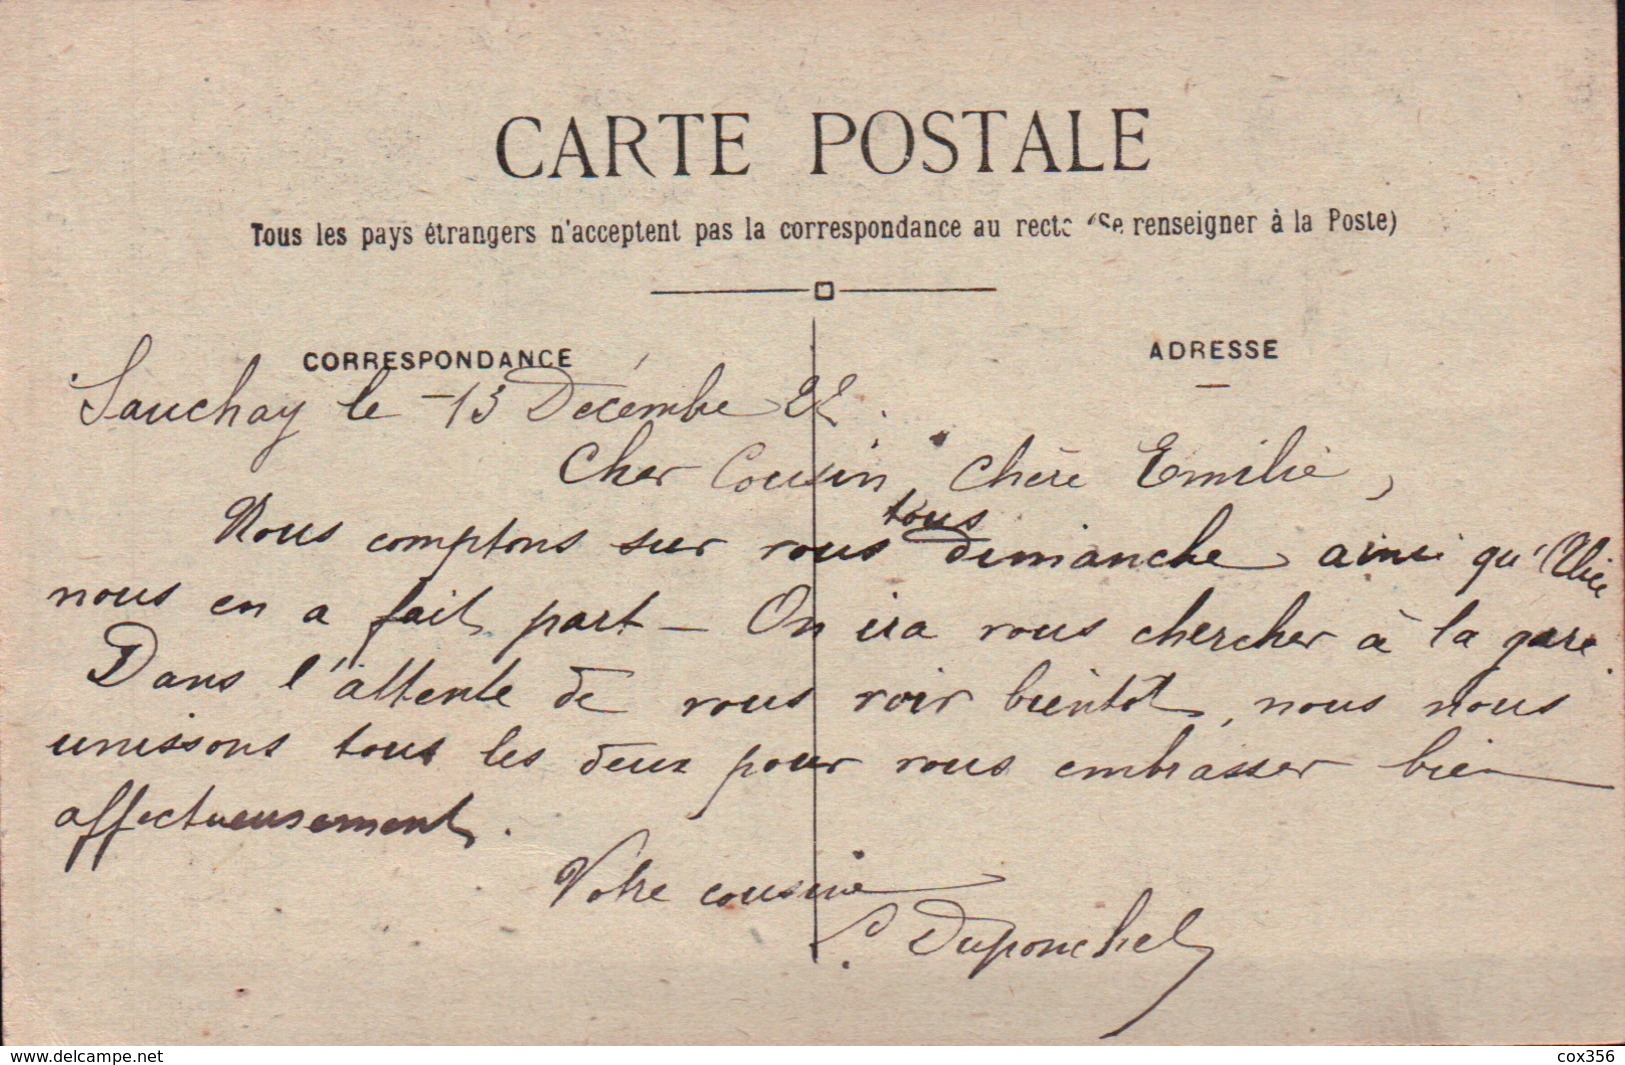 CARTE POSTALE
Tous les pays étrangers n'acceptent pas la correspondance au recto (Se renseigner à la Poste)
CORRESPONDANCE
ADRESSE
Sauchay le 13 Décembre 22.
Cher Cousin, Chère Emilie,
tous
Nous comptons sur vous dimanche ainsi qu'Alice
nous en a fait part - On ira vous chercher à la gare.
Dans l'attente de vous voir bientôt, nous nous
unissons tous les deux pour vous embrasser bien
affectueusement.
Votre cousine
Duponchel
www.delcampe.net
cox356